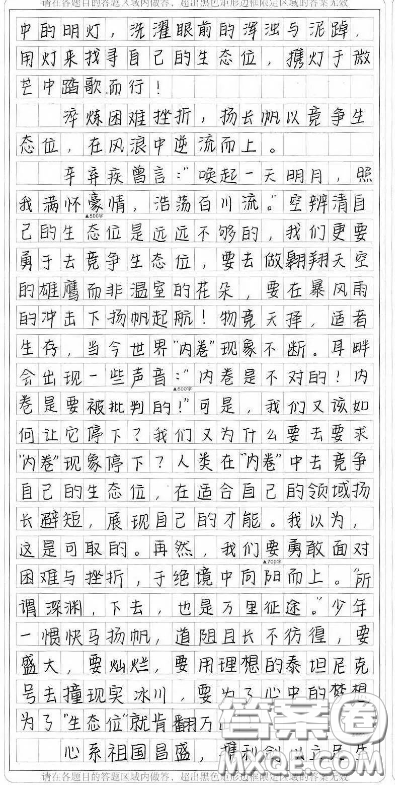 请在各题目的答题区域内做答，超出黑色矩形边框限定区域的答案无效
中的明灯，洗濯眼前的浑浊与泥踔，
用灯来找寻自己的生态位，携灯于微
芒中踏歌而行！
淬炼困难挫折，扬长帆以竞争生
态位，在风浪中逆流而上。
辛弃疾曾言：“唤起一天明月，照
我满怀豪情，浩荡白川流。”空辨清自
▲500字
己的生态位是远远不够的，我们更要
勇于去竞争生态位，要去做翱翔天空
的雄鹰而非温室的花朵，要在暴风雨
的冲击下扬帆起航！物竞天择，适者
生存，当今世界“内卷”现象不断。耳畔
会出现一些声音：“内卷是不对的！内
卷是要被批判的！”可是，我们又该如
何让它停下？我们又为什么要去要求
“内卷”现象停下？人类在“内卷”中去竞争
自己的生态位，在适合自己的领域扬
长避短，展现自己的才能。我以为，
这是可取的。再然，我们要勇敢面对
▲700字
困难与挫折，于绝境中向阳而上。“所
谓深渊，下去，也是万里征途。”少年
一惯快马扬帆，道阻且长不彷徨，要
盛大，要灿烂，要用理想的泰坦尼克
号去撞现实冰川，要为了心中的梦想
为了“生态位”就肯翻万
心系祖国昌盛，携利剑以立民生
请在各题目的答题区域内做答，超出黑色矩形边框限定区域的答案无效
答案圈